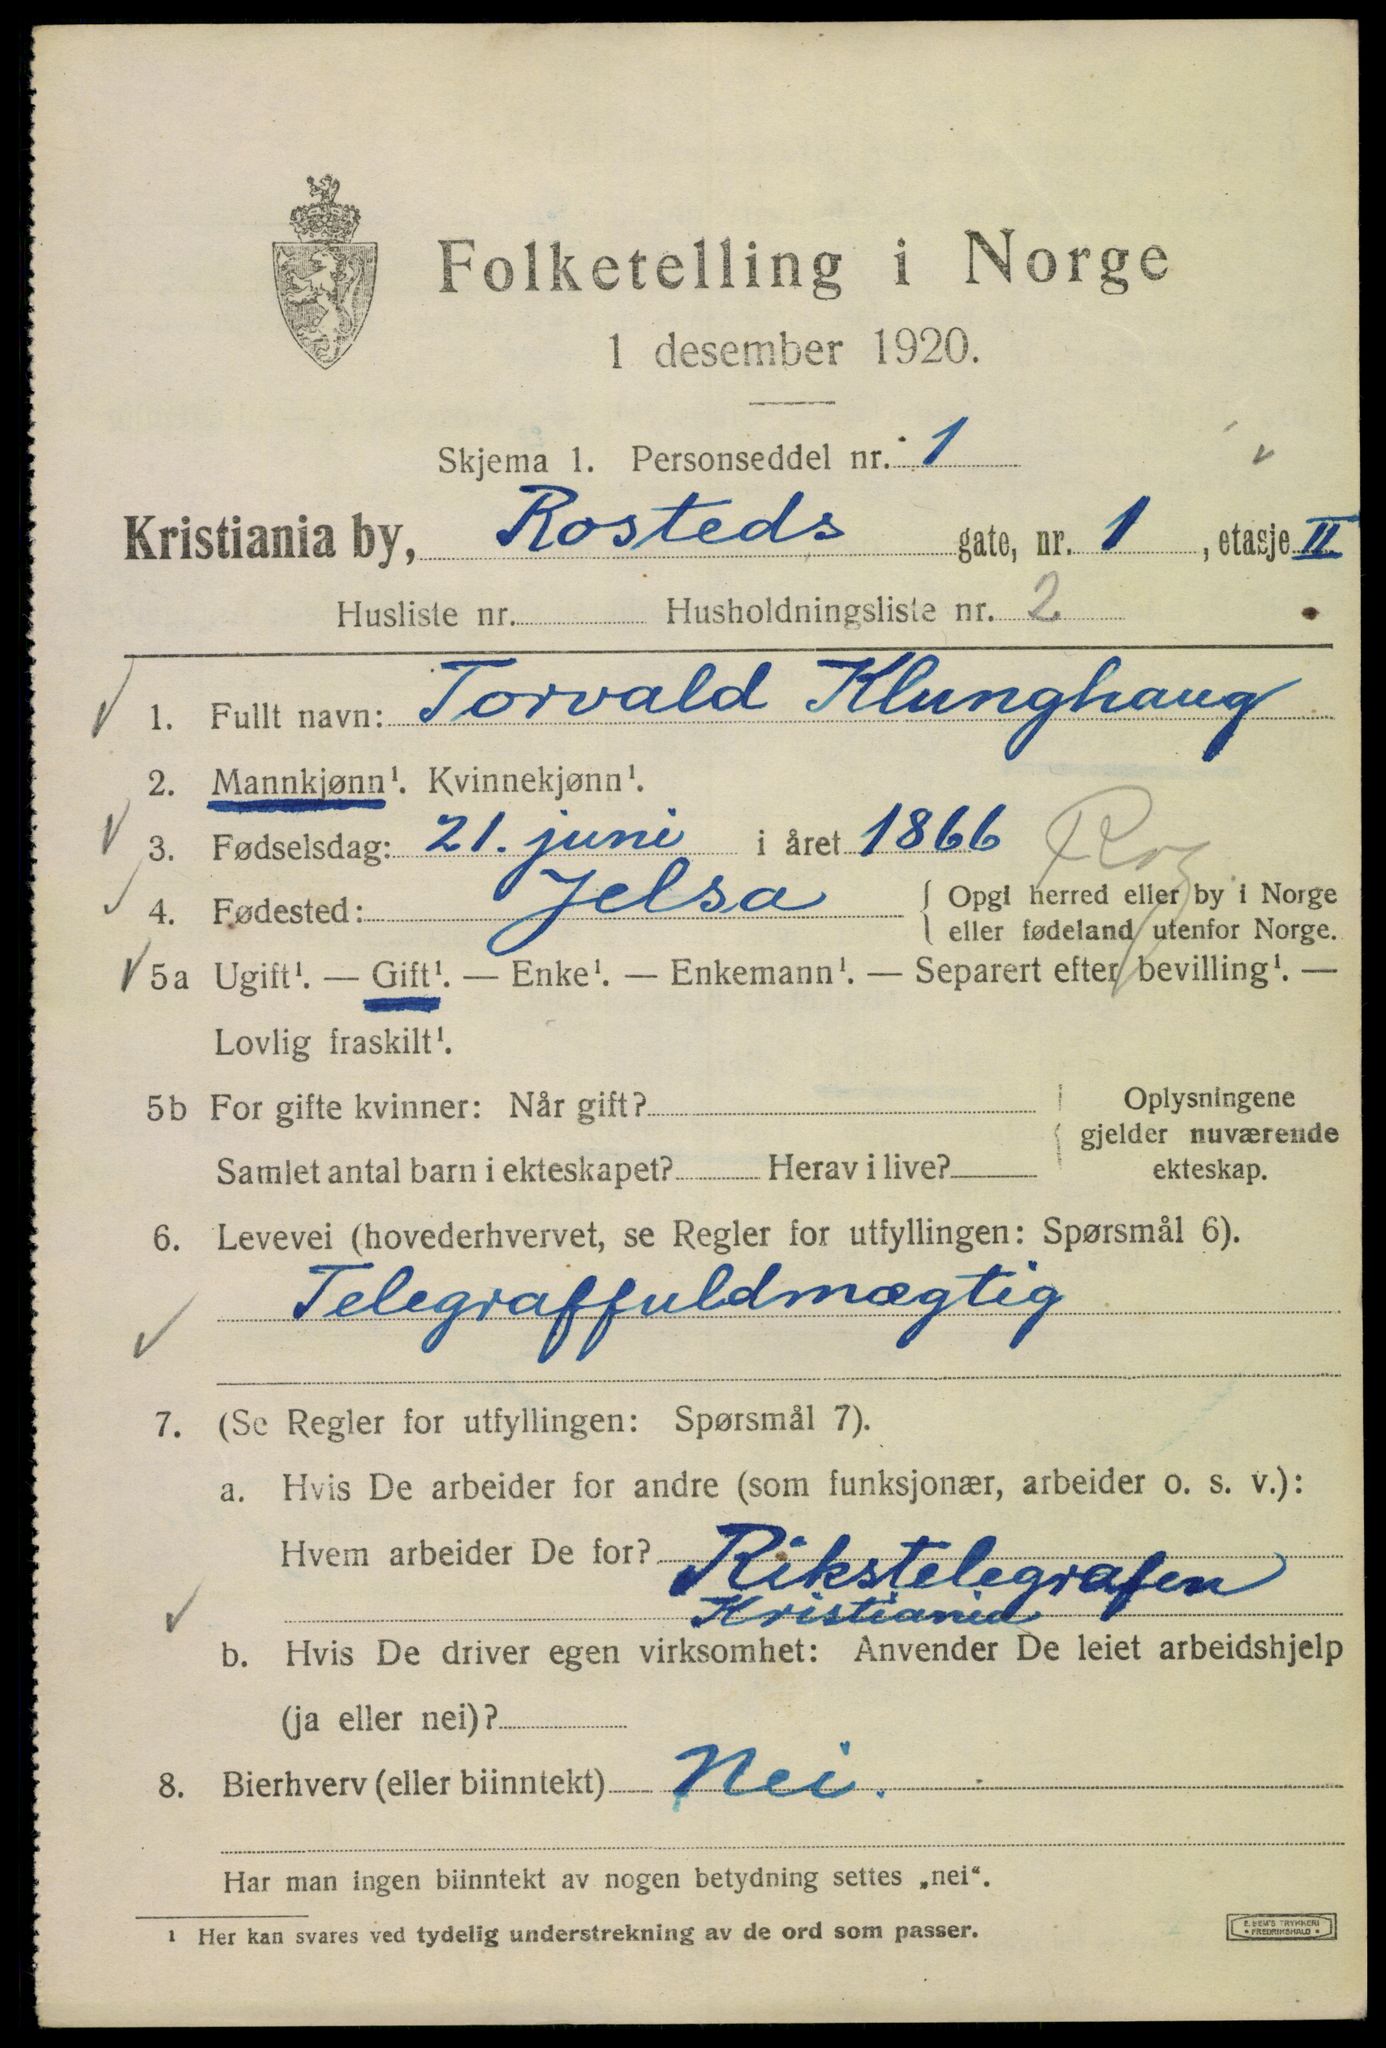 Folketelling i Norge
1 desember 1920.
Skjema 1. Personseddel nr. 1
Kristiania by, Rosteds gate, nr. 1, etasje II.
Husliste nr. Husholdningsliste nr. 2
1. Fullt navn: Torvald Klunghaug
2. Mannkjønn¹. Kvinnekjønn¹.
3. Fødselsdag: 21. juni i året 1866
4. Fødested: Jelsa { Opgi herred eller by i Norge
eller fødeland utenfor Norge.
5a Ugift¹. — Gift¹. — Enke¹. — Enkemann¹. — Separert efter bevilling¹. —
Lovlig fraskilt¹.
5b For gifte kvinner: Når gift? Oplysningene
gjelder nuværende
Samlet antal barn i ekteskapet? Herav i live? ekteskap.
6. Levevei (hovederhvervet, se Regler for utfyllingen: Spørsmål 6).
Telegraffuldmægtig
7. (Se Regler for utfyllingen: Spørsmål 7).
a. Hvis De arbeider for andre (som funksjonær, arbeider o. s. v.):
Hvem arbeider De for? Rikstelegrafen
Kristiania
b. Hvis De driver egen virksomhet: Anvender De leiet arbeidshjelp
(ja eller nei)?
8. Bierhverv (eller biinntekt) Nei.
Har man ingen biinntekt av nogen betydning settes „nei“.
¹ Her kan svares ved tydelig understrekning av de ord som passer.
E. SEM'S TRYKKERI
• FREDRIKSHALD •